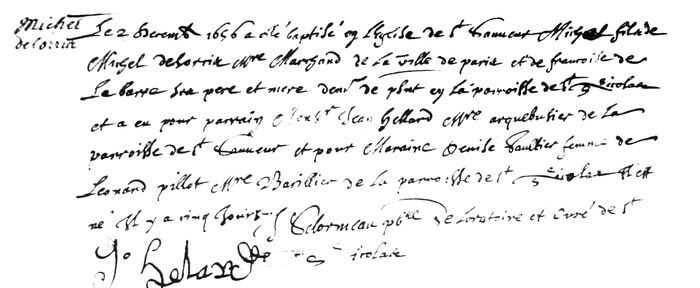 Michel
delorria
Le 2 decemb 1656 a été baptisé en l'Eglise de st Sauveur Michel fils de
Michel delorria Mre Marchand de la ville de paris et de francoise de
La barre ses pere et mere dem^t de p^lnt en la parroisse de st nicolas
et a eu pour parrain Jean Hellard Mre arquebusier de la
parroisse de st Sauveur et pour Maraine denise Saultier femme de
Leonard pillot Mre Barillier de la parroisse de st nicolas Il est
né Il y a cinq Jours Delormeau pbre de loratoire et Curé de st
Jo Helard nicolas